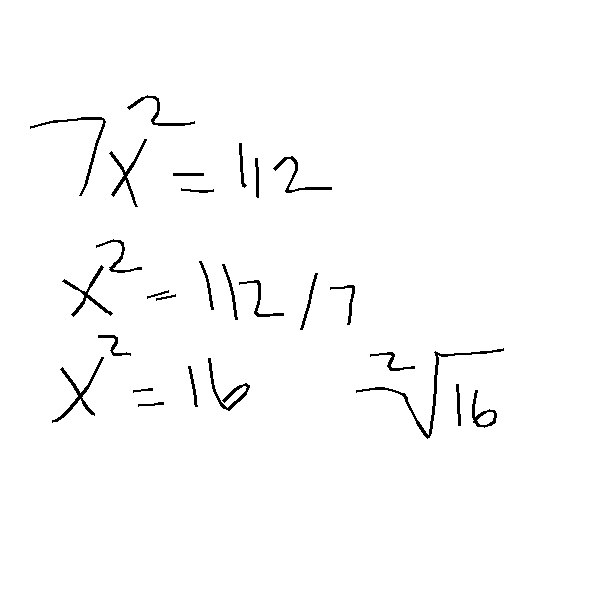 7x² = 112
x² = 112/7
x² = 16 ²√16